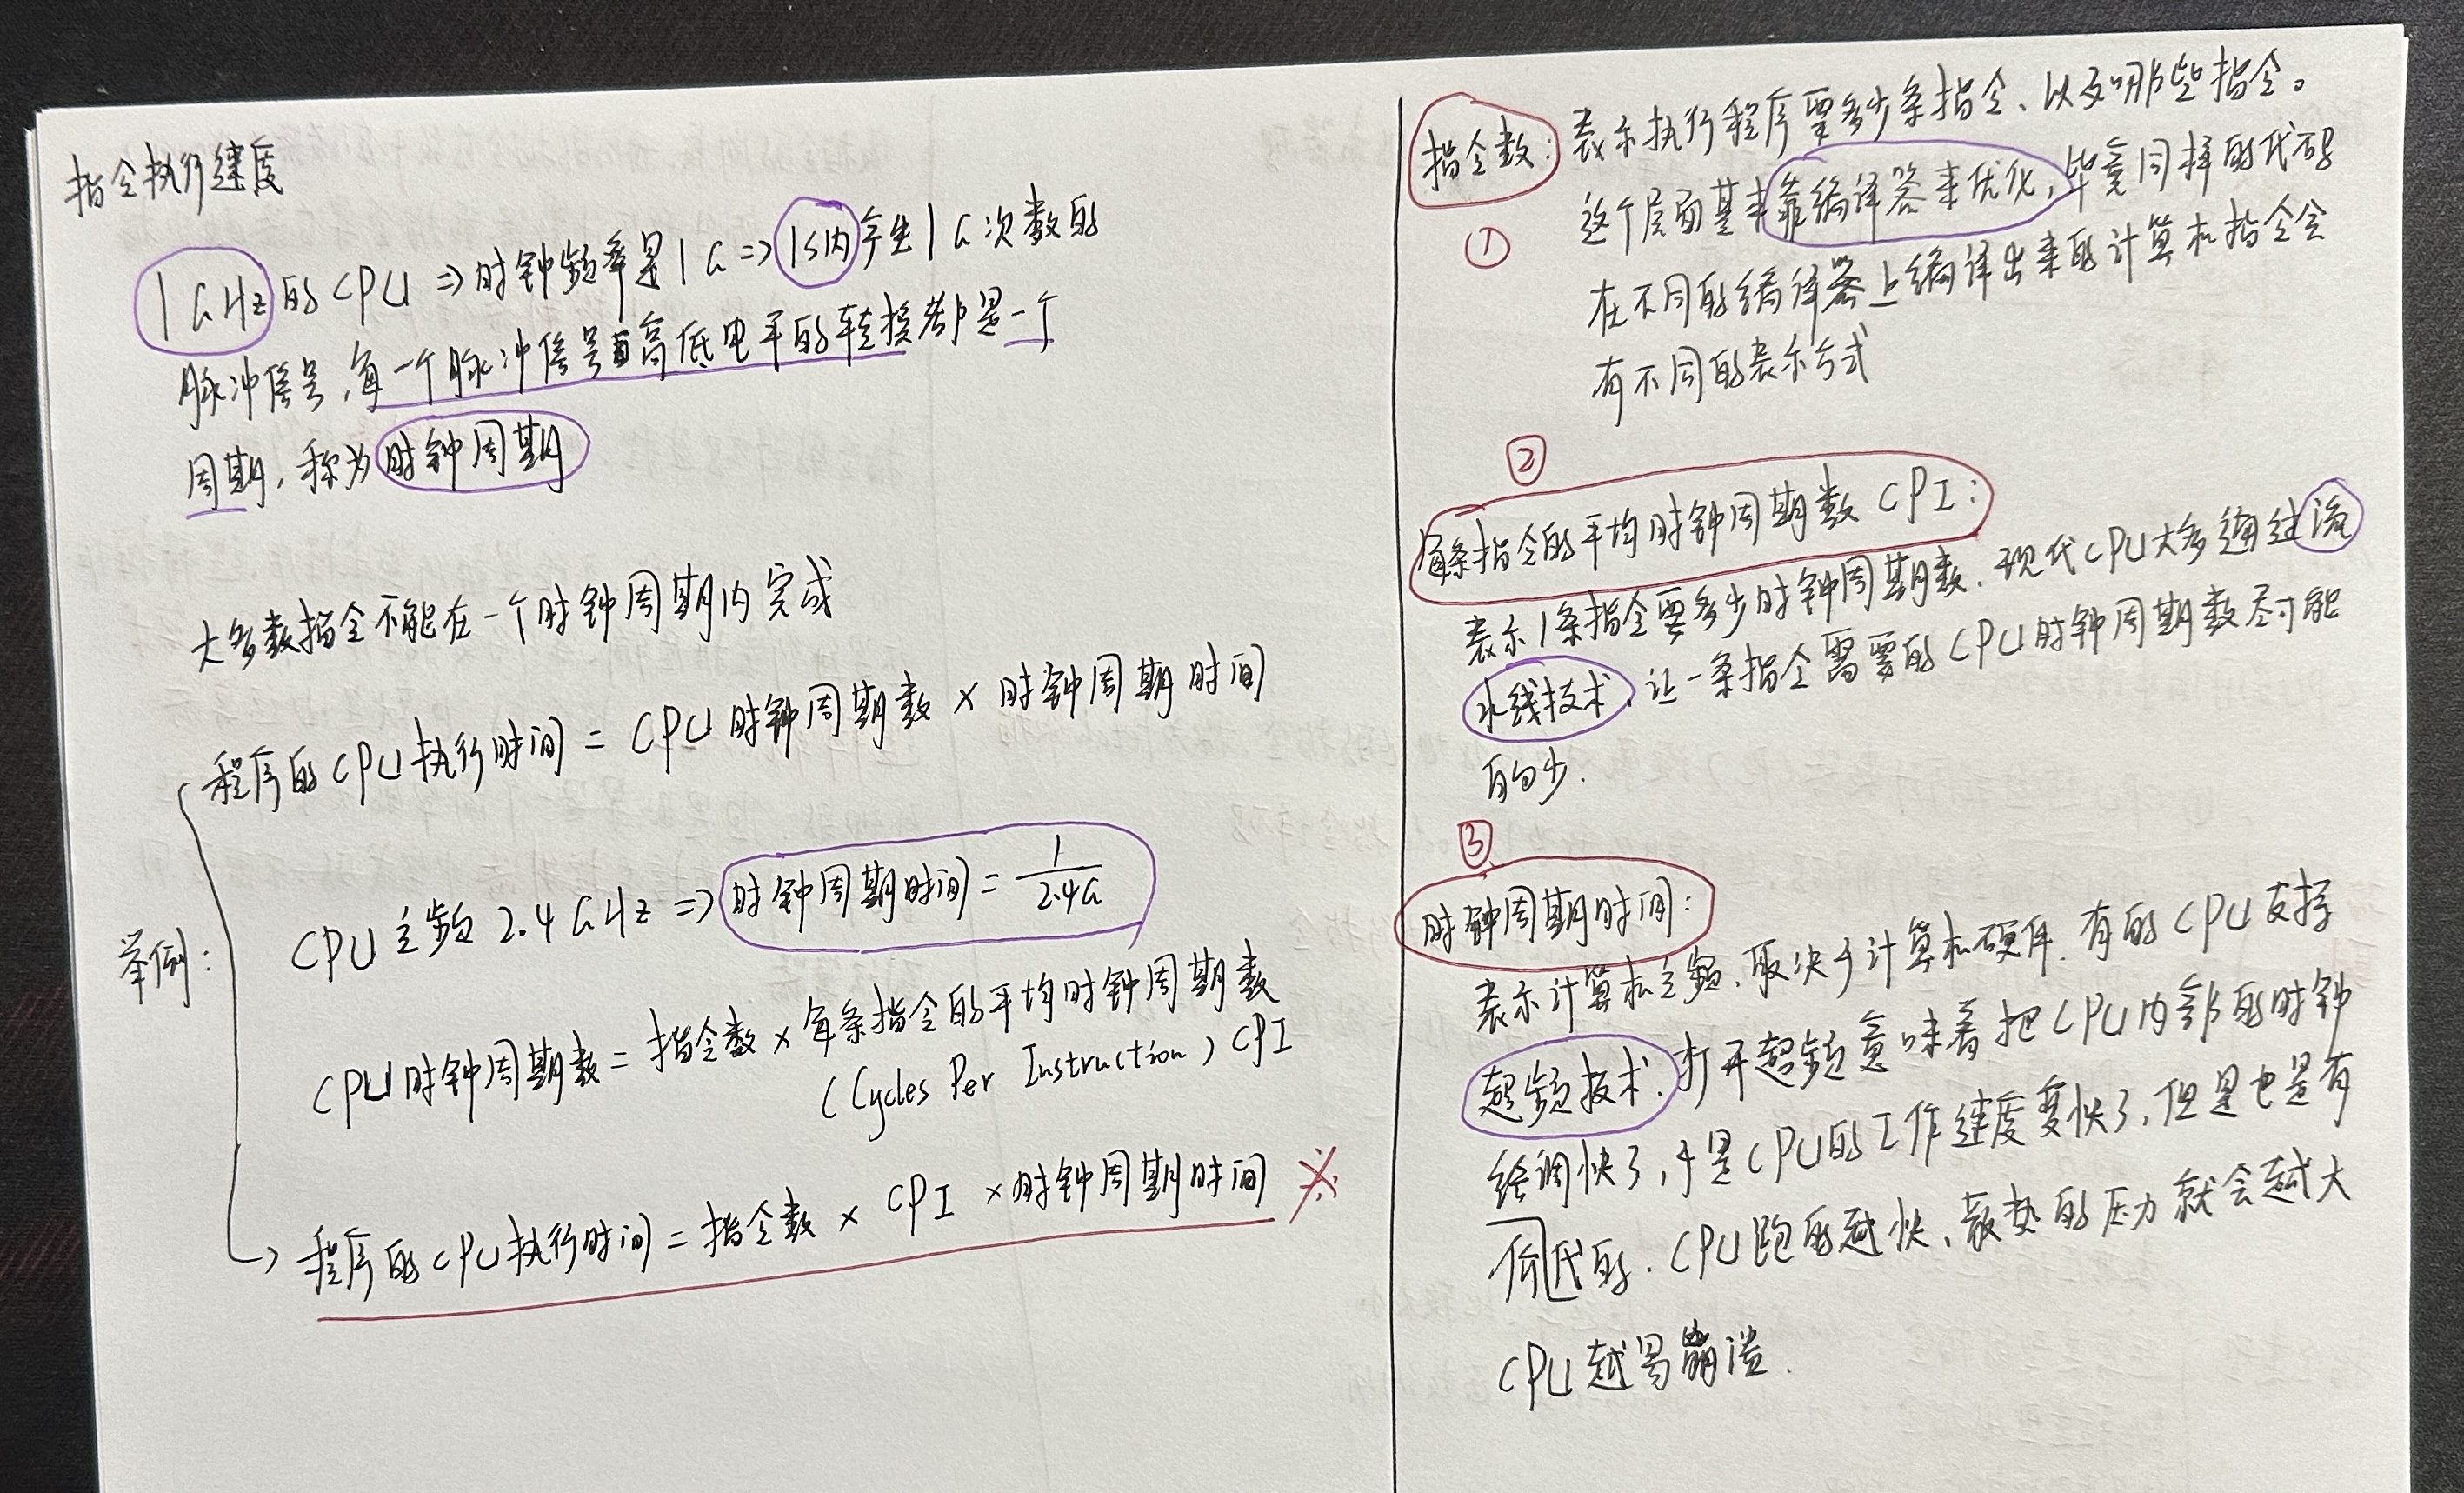 指令执行速度
1GHz的CPU => 时钟频率是1G => 1s内产生1G次数的
脉冲信号,每一个脉冲信号高低电平的转换都是一个
周期,称为时钟周期
大多数指令不能在一个时钟周期内完成
程序的CPU执行时间 = CPU时钟周期数 × 时钟周期时间
举例:
CPU主频 2.4GHz => 时钟周期时间 = 1/2.4G
CPU时钟周期数 = 指令数 × 每条指令的平均时钟周期数
(Cycles Per Instruction) CPI
程序的CPU执行时间 = 指令数 × CPI × 时钟周期时间 ※
指令数: 表示执行程序要多少条指令、以及哪些指令。
①
这个层面基本靠编译器来优化,毕竟同样的代码
在不同的编译器上编译出来的计算机指令会
有不同的表示方式
②
每条指令的平均时钟周期数CPI:
表示1条指令要多少时钟周期数.现代CPU大多通过流
水线技术,让一条指令需要的CPU时钟周期数尽可能
的少.
③
时钟周期时间:
表示计算机主频,取决于计算机硬件.有的CPU支持
超频技术,打开超频意味着把CPU内部的时钟
给调快了,于是CPU的工作速度变快了,但是也是有
代价的.CPU跑的越快、散热的压力就会越大
CPU越易崩溃.